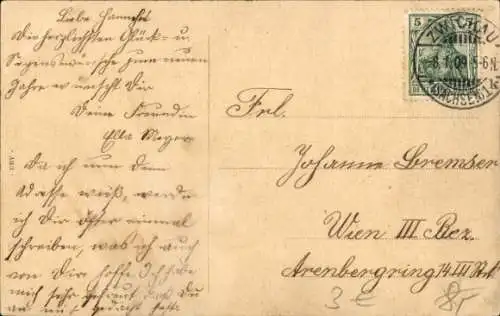 Liebe Hannerl
Die herzlichsten Glück- u.
Segenswünsche zum neuen
Jahre erwünscht Dir
Deine Freundin
Ella Meyer
Da ich nun dem
Adresse weiß, werde
ich Dir öfter einmal
schreiben, was ich auch
von Dir hoffe. Ich habe
mich sehr gefreut das Du
an mich gedacht hast.
5
ZWICKAU
8.1.09 5-6N.
(SACHSEN) 1
Frl.
Johanne Bremser
Wien III Bez.
Arenbergring 14 III St.
3 €